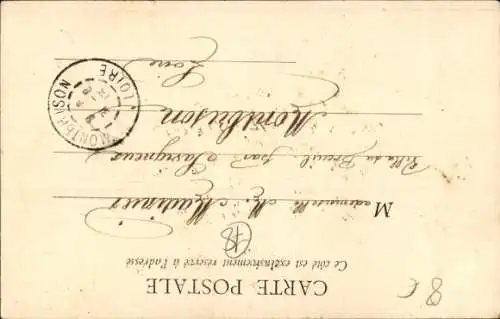 CARTE POSTALE
Ce côté est exclusivement réservé à l'adresse
Mademoiselle M.
Villa du Breuil par Savigneux
Montbrison
Loire
MONTBRISON
LOIRE
8 €